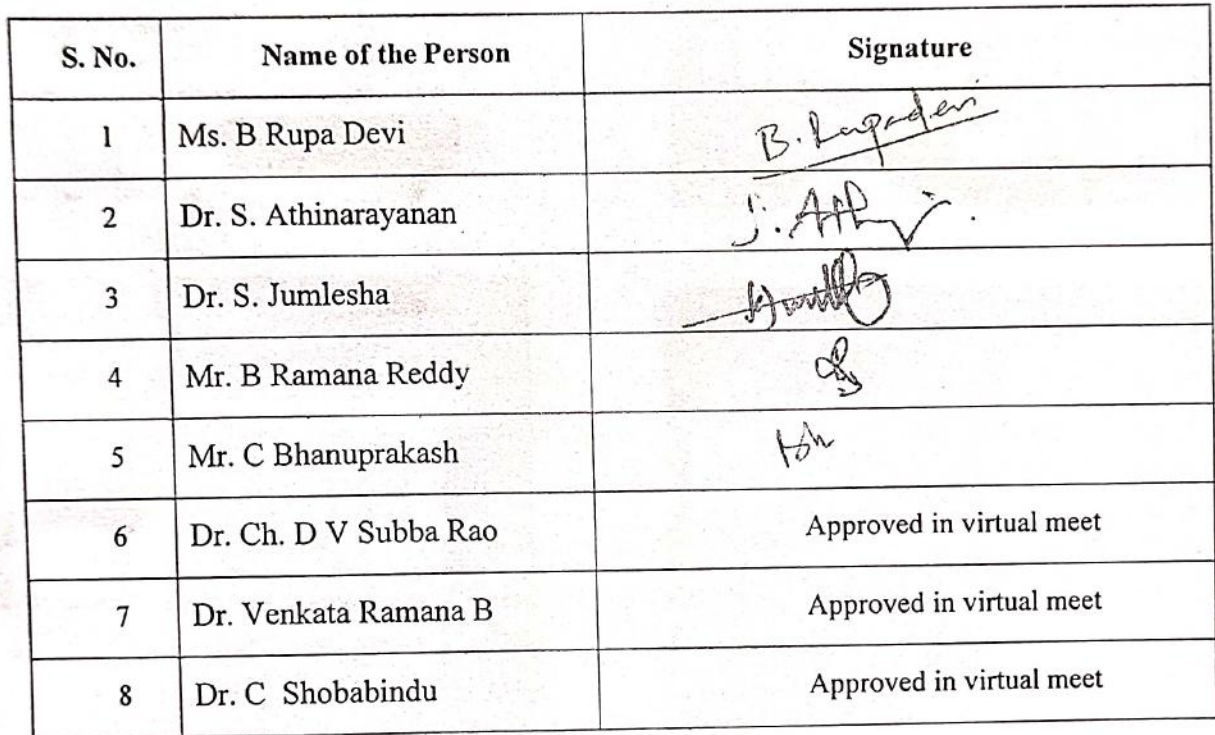 S. No. Name of the Person Signature
1 Ms. B Rupa Devi B. Rupadevi
2 Dr. S. Athinarayanan
3 Dr. S. Jumlesha
4 Mr. B Ramana Reddy
5 Mr. C Bhanuprakash
6 Dr. Ch. D V Subba Rao Approved in virtual meet
7 Dr. Venkata Ramana B Approved in virtual meet
8 Dr. C Shobabindu Approved in virtual meet